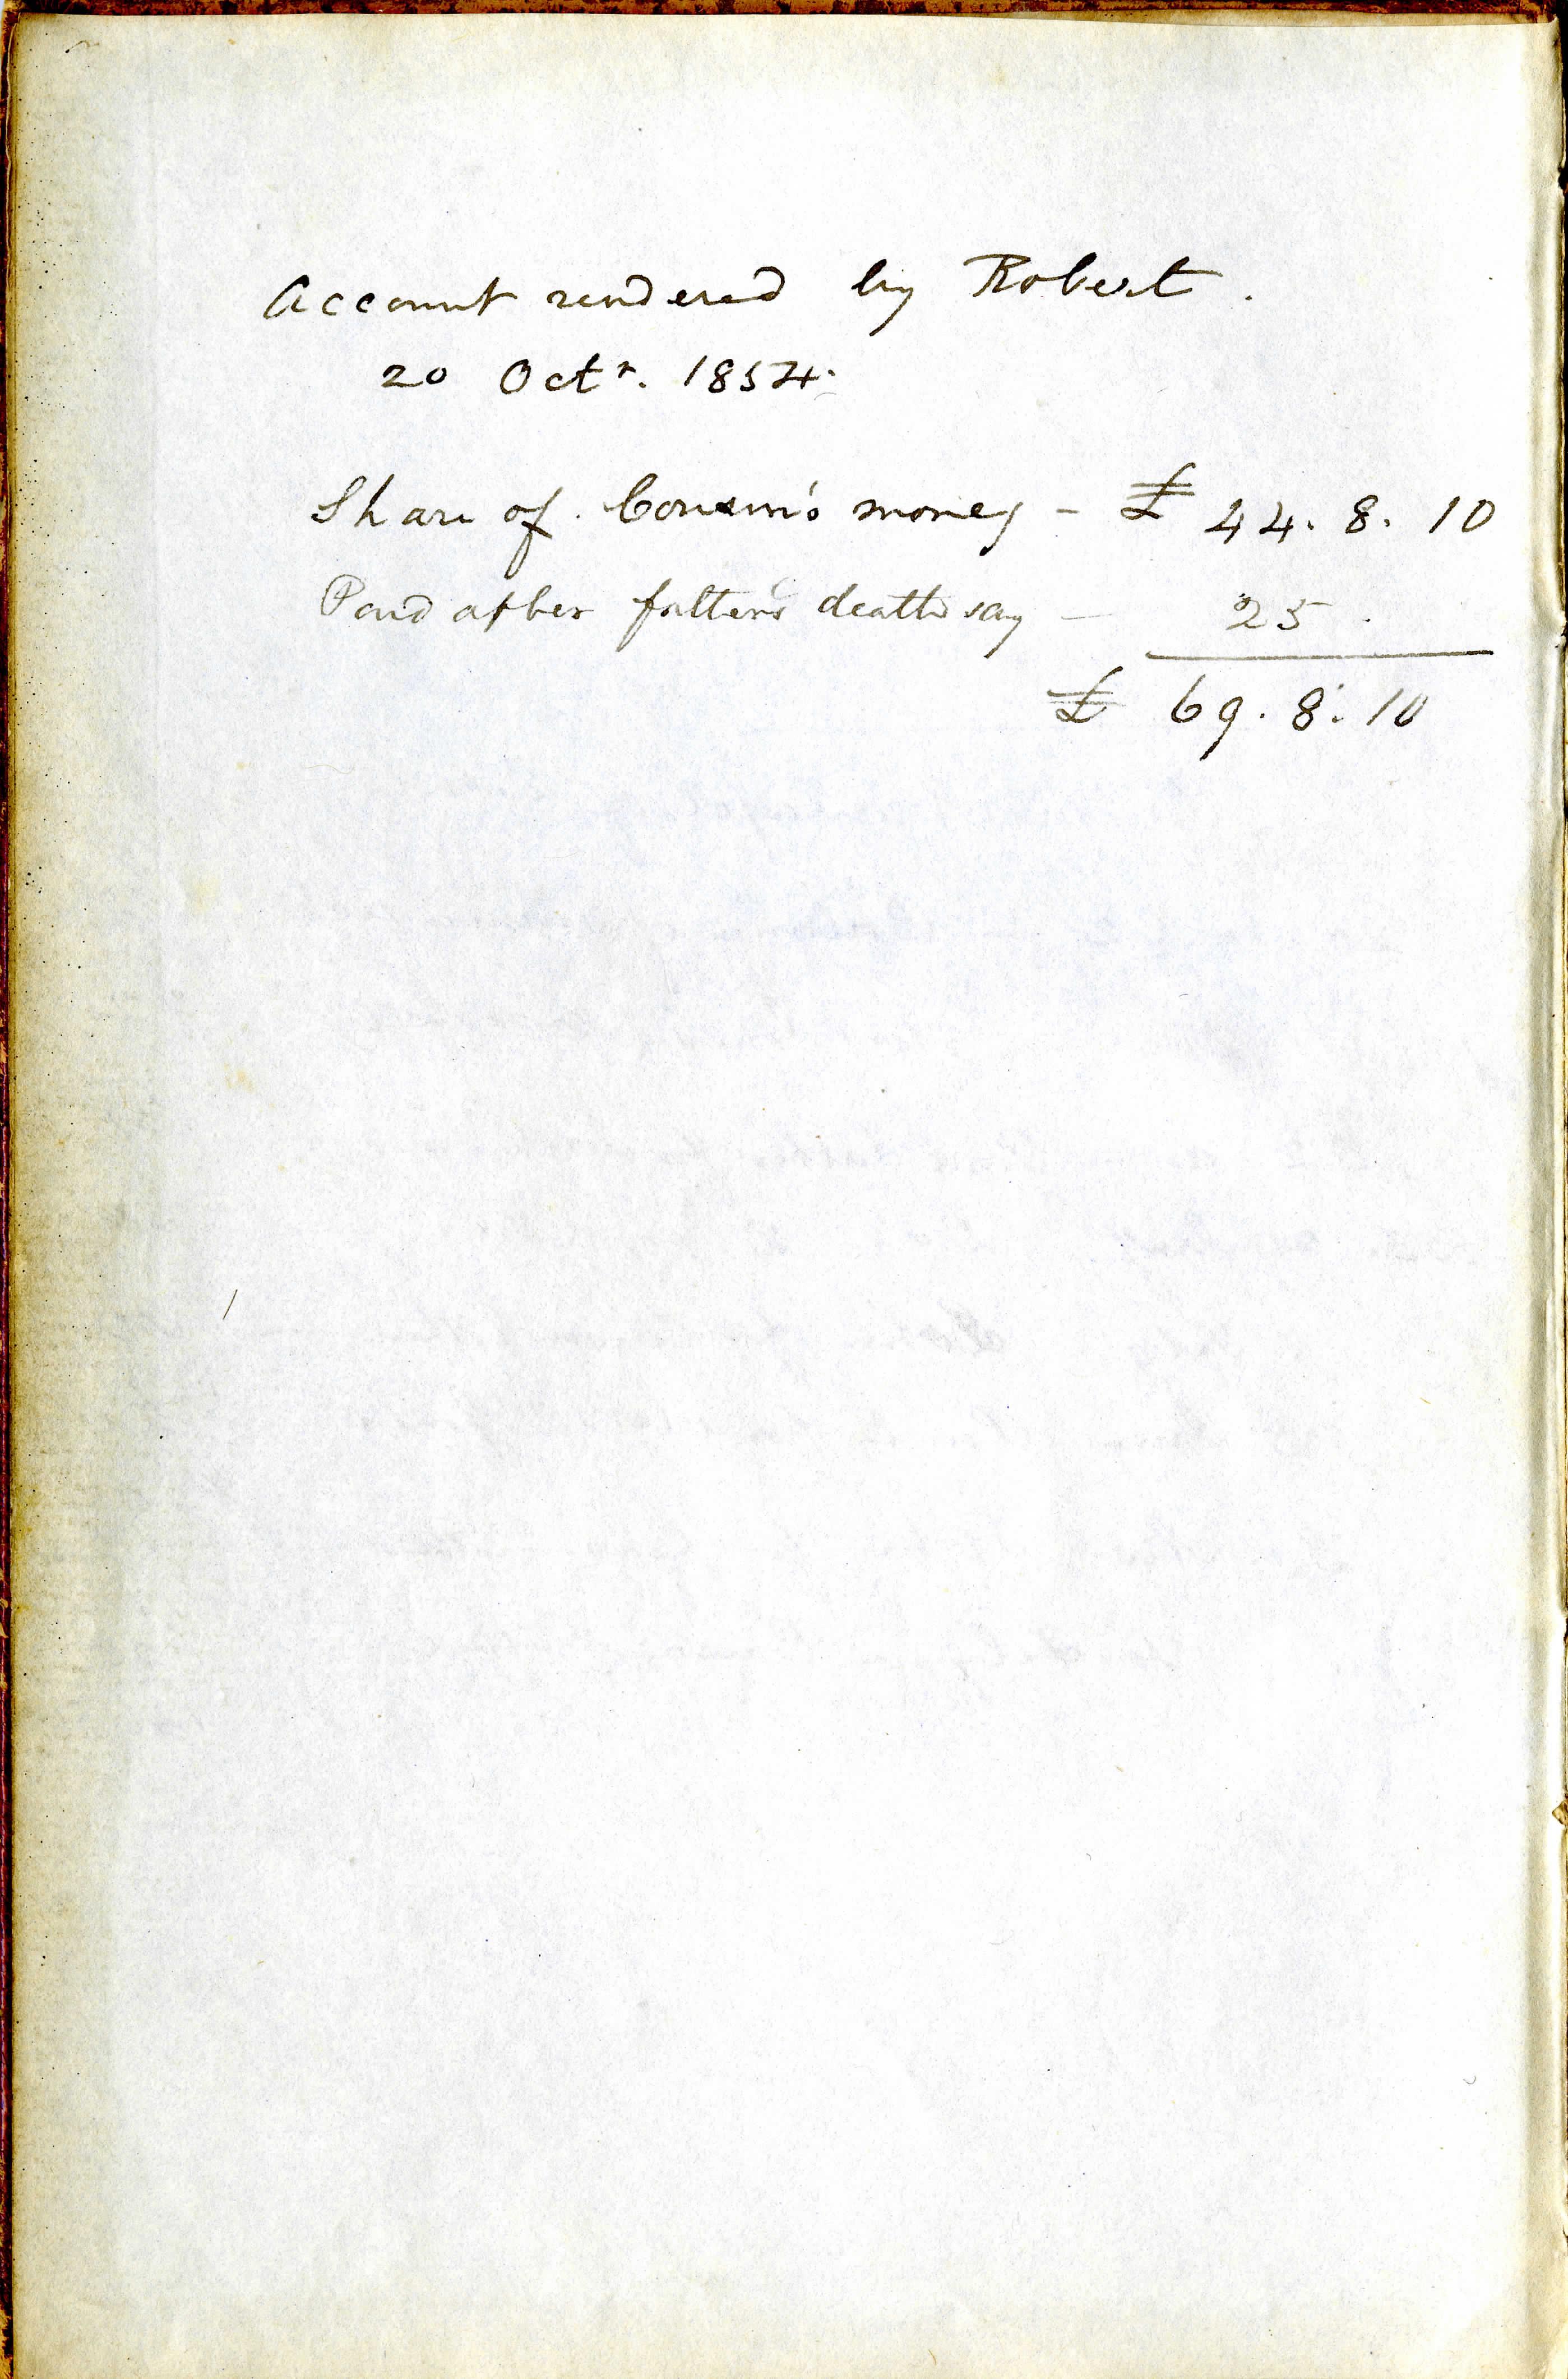 Account rendered by Robert.
20 Octr. 1854.
Share of Cousin's money - £ 44. 8. 10
Paid after father's death say - 25
£ 69. 8. 10